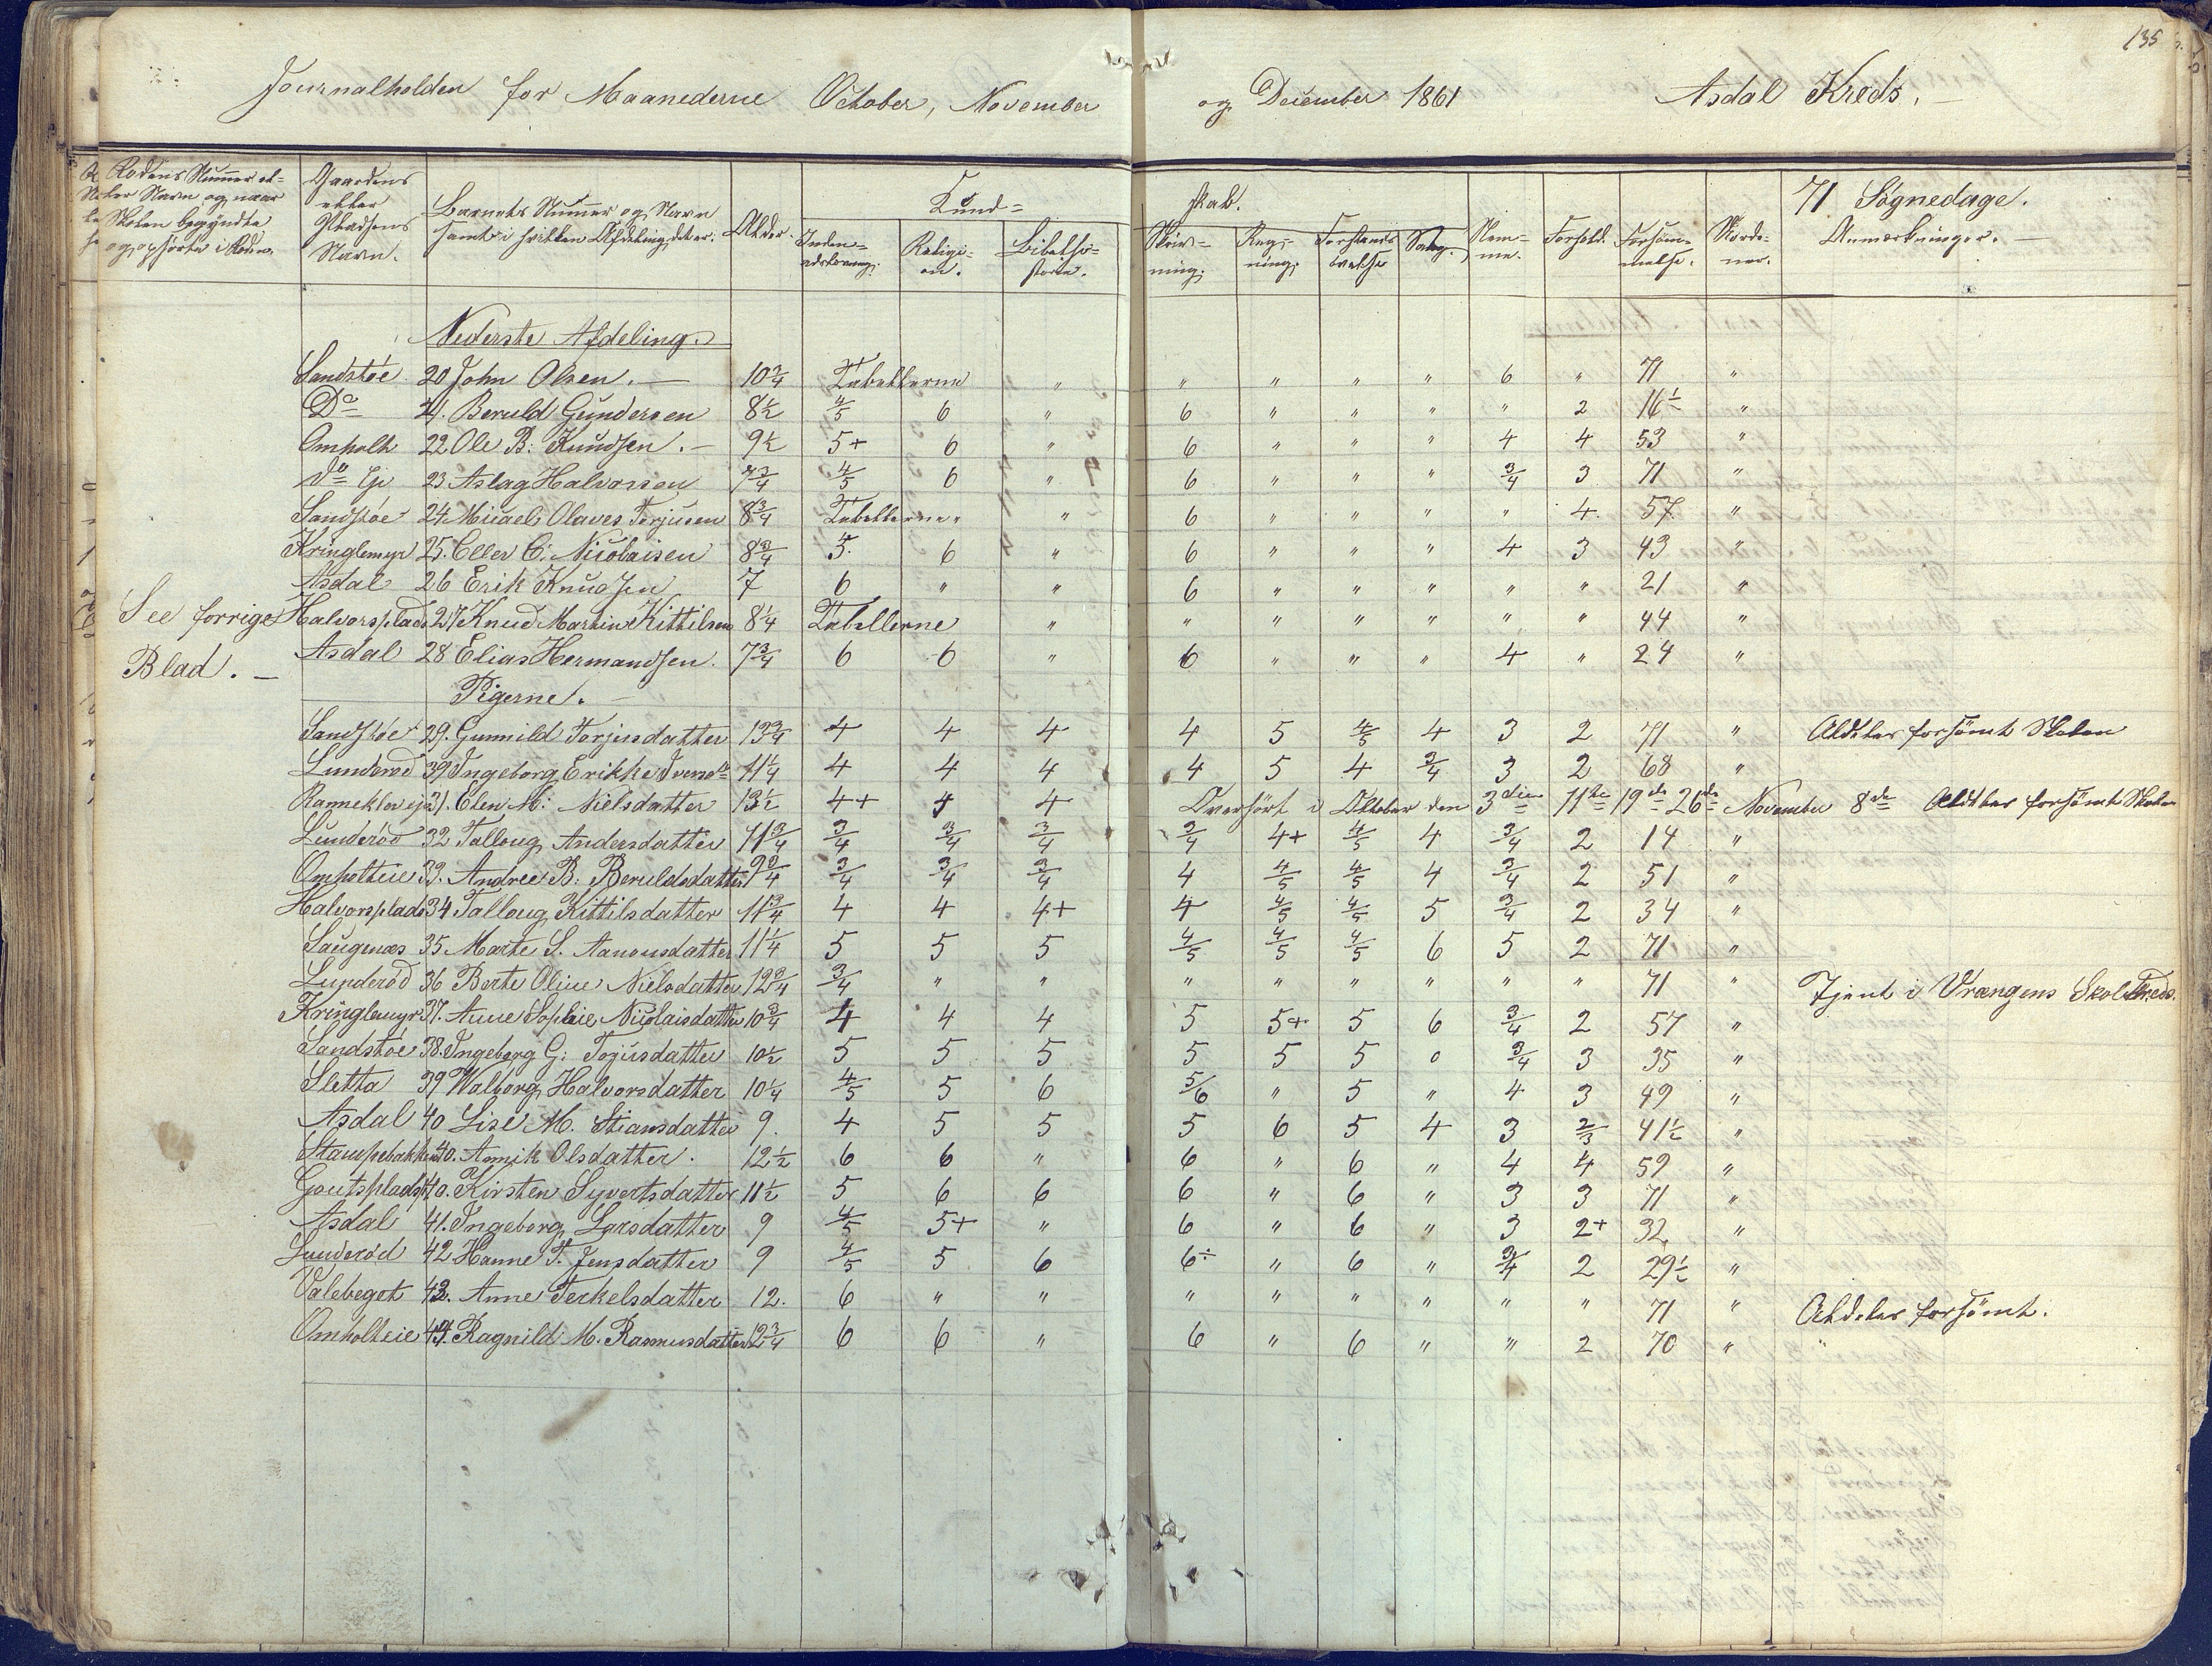 135
Journalholden for Maanederne October, November og December 1861 Asdal Kreds.
Rodens Nummer el-
ler Navn og naar
Skolen begyndte
og ophørte i Roden.
Gaardens
eller
Pladsens
Navn.
Barnets Nummer og Navn
samt i hvilken Afdeling det er.
Alder.
Kund=
skab.
Inden-
adslæsning.
Religi-
on.
Bibelhi-
storie.
Skriv-
ning.
Reg-
ning.
Forstands
øvelse
Sang.
Nem-
me.
Forhold.
Forsøm-
melse.
71 Søgnedage.
Anmærkninger.
Nederste Afdeling.
Sandstøe 20 John Olsen. 10 3/4 Tabellerne " " " " " 6 " 71 "
Do 21. Beruld Gundersen 8 1/2 4/5 6 " 6 " " " " 2 16 1/2 "
Omholt 22 Ole B: Knudsen. 9 1/2 5+ 6 " 6 " " " 4 4 53 "
do Eje 23 Aslag Halvorsen 7 3/4 4/5 6 " 6 " " " 3/4 3 71 "
Sandstøe 24 Micael Olaves Torjusen 8 3/4 Tabellerne " 6 " " " " 4 57 "
Kringlemyr 25. Eller C: Nicolaisen 8 3/4 5 6 " 6 " " " 4 3 43 "
Asdal 26 Erik Knudsen 7 6 " " 6 " " " " " 21 "
See forrige
Blad.
Halvorsplads 27 Knud Martin Kittilsen 8 1/4 Tabellerne " " " " " " " 44 "
Asdal 28 Elias Hermandsen. 7 3/4 6 6 " 6 " " " 4 " 24 "
Pigerne.
Sandstøe 29. Gunnild Torjusdatter 13 3/4 4 4 4 4 5 4/5 4 3 2 71 " Aldeles forsømt Skolen
Lunderød 30 Ingeborg Erikke Iversdr 11 1/4 4 4 4 4 5 4 3/4 3 2 68 "
Ranneklev eje 31. Elen M: Nielsdatter 13 1/2 4+ 4 4 Overhørt i Oktober den 3die 11te 19de 26de November 8de Aldeles forsømt Skolen
Lunderød 32 Talloug Andersdatter 11 3/4 3/4 3/4 3/4 3/4 4+ 4/5 4 3/4 2 14 "
Omholteie 33. Andree B: Beruldsdatter 9 3/4 3/4 3/4 3/4 4 4/5 4/5 4 3/4 2 51 "
Halvorsplads 34 Talloug Kittilsdatter 11 3/4 4 4 4+ 4 4/5 4/5 5 3/4 2 34 "
Saugenæs 35 Marte S. Aanonsdatter 11 1/4 5 5 5 4/5 4/5 4/5 6 5 2 71 "
Lunderød 36 Berte Oline Nielsdatter 12 3/4 3/4 " " " " " " " " 71 " Tjent i Vrængens Skolekreds.
Kringlemyr 37. Anne Sophie Nicolaisdatter 10 3/4 4 4 4 5 5+ 5 6 3/4 2 57 "
Sandstøe 38. Ingeborg G: Tojusdatter 10 1/2 5 5 5 5 5 5 0 3/4 3 35 "
Sletta 39 Walborg Halvorsdatter 10 1/4 4/5 5 6 5/6 " 5 " 4 3 49 "
Asdal 40 Lise M. Stiansdatter 9. 4 5 5 5 6 5 4 3 2/3 41 1/2 "
Stampebakken 40. Annik Olsdatter. 12 1/2 6 6 " 6 " 6 " 4 4 59 "
Goutsplads 40. Kirsten Syvertsdatter 11 1/2 5 6 6 6 " 6 " 3 3 71 "
Asdal 41. Ingeborg Larsdatter 9 4/5 5+ " 6 " 6 " 3 2+ 32 "
Lunderød 42 Hanne T. Jensdatter 9 4/5 5 6 6÷ " 6 " 3/4 2 29 1/2 "
Valebeget 43. Anne Terkelsdatter 12. 6 " " " " " " " " 71 " Aldeles forsømt.
Omholteie 44. Ragnild M. Rasmusdatter 12 3/4 6 6 " 6 " 6 " " 2 70 " "